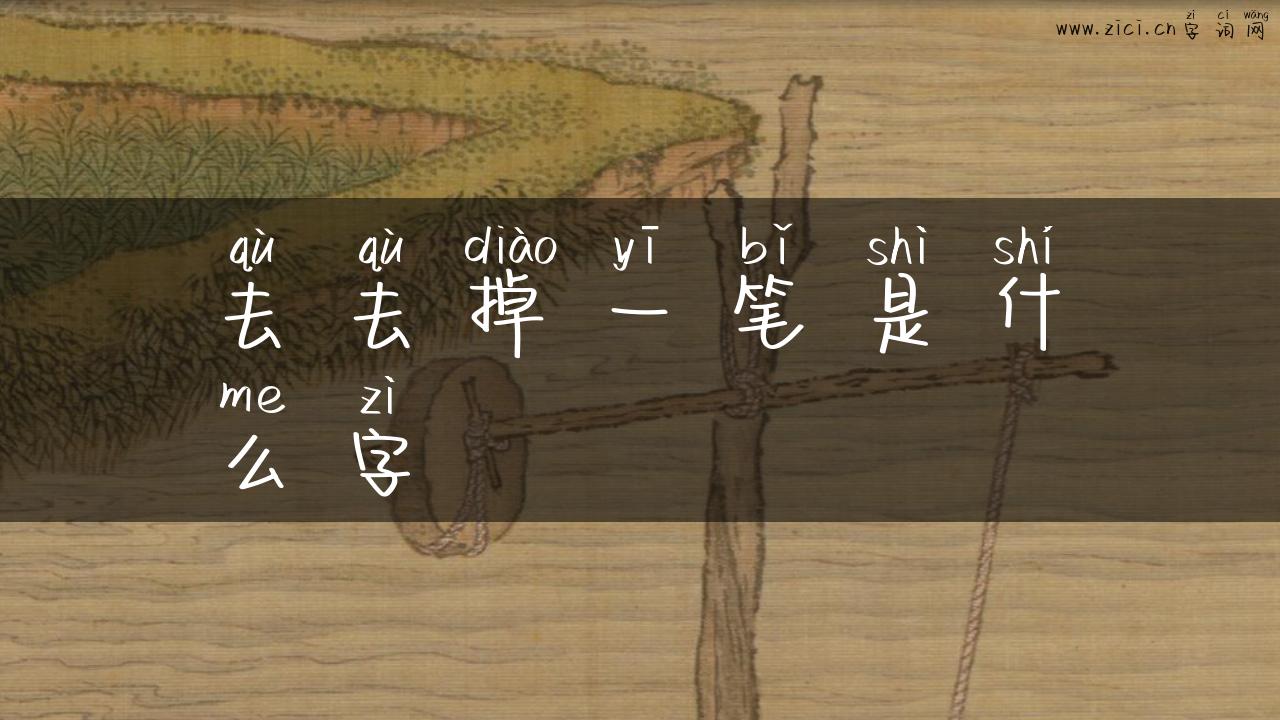 zì cí wǎng
www.zici.cn 字 词 网
qù qù diào yī bǐ shì shí
去 去 掉 一 笔 是 什
me zì
么 字